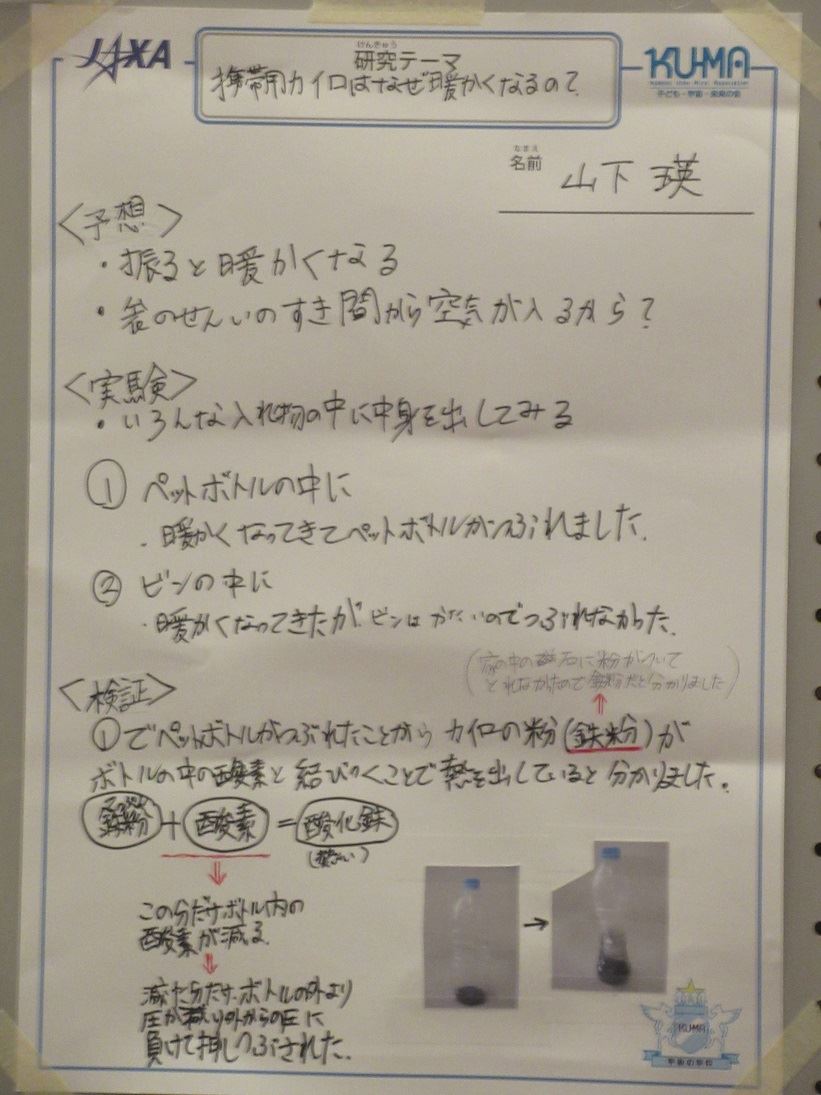 JAXA
けんきゅう
研究テーマ
携帯用カイロはなぜ暖かくなるの?
KU-MA
子ども・宇宙・未来の会
なまえ
名前
山下 瑛
<予想>
・振ると暖かくなる
・袋のせんいのすき間から空気が入るから?
<実験>
・いろんな入れ物の中に中身を出してみる
① ペットボトルの中に
・暖かくなってきてペットボトルがつぶれました。
② ビンの中に
・暖かくなってきたが、ビンはかたいのでつぶれなかった。
(家の中の磁石に粉がついて
とれなかったので鉄粉だと分かりました)
<検証>
①でペットボトルがつぶれたことから カイロの粉(鉄粉)が
ボトルの中の酸素と結びつくことで熱を出していると分かりました。
鉄粉 + 酸素 = 酸化鉄
この分だけボトル内の
酸素が減る。
減た分だけ、ボトルの外より
圧が減り外からの圧に
負けて押しつぶされた。
KUMA
宇宙の学校